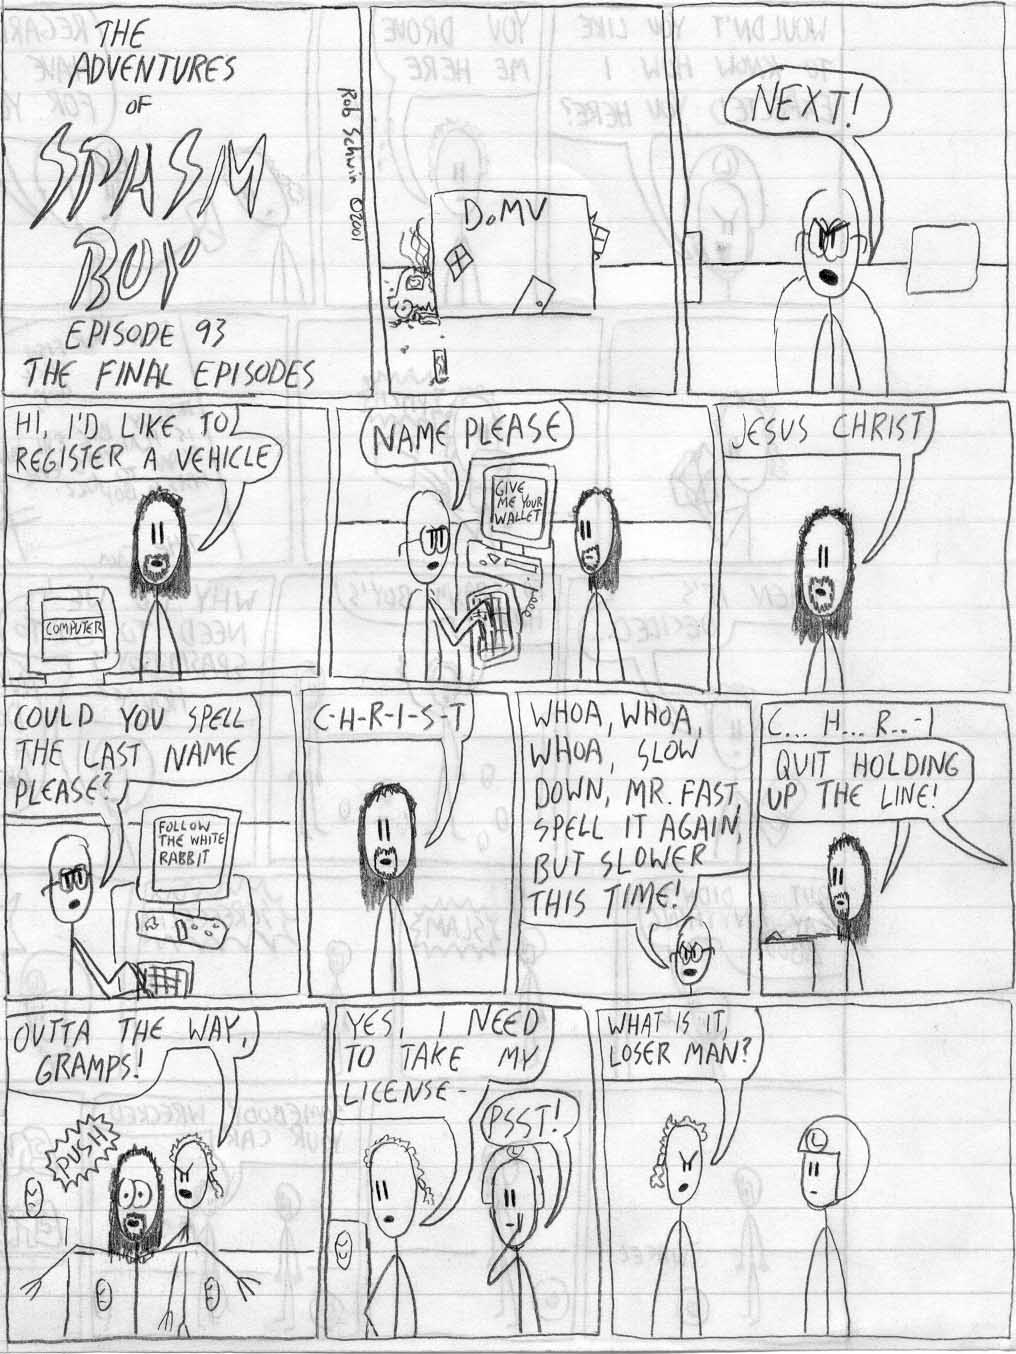 THE
ADVENTURES
OF
SPASM
BOY
EPISODE 93
THE FINAL EPISODES
Rob Schwin ©2001
DOMV
NEXT!
HI, I'D LIKE TO
REGISTER A VEHICLE
COMPUTER
NAME PLEASE
GIVE
ME YOUR
WALLET
JESUS CHRIST
COULD YOU SPELL
THE LAST NAME
PLEASE?
FOLLOW
THE WHITE
RABBIT
C-H-R-I-S-T
WHOA, WHOA,
WHOA, SLOW
DOWN, MR. FAST,
SPELL IT AGAIN,
BUT SLOWER
THIS TIME!
C... H... R...-I
QUIT HOLDING
UP THE LINE!
OUTTA THE WAY,
GRAMPS!
PUSH!
YES, I NEED
TO TAKE MY
LICENSE-
PSST!
L
WHAT IS IT,
LOSER MAN?
L